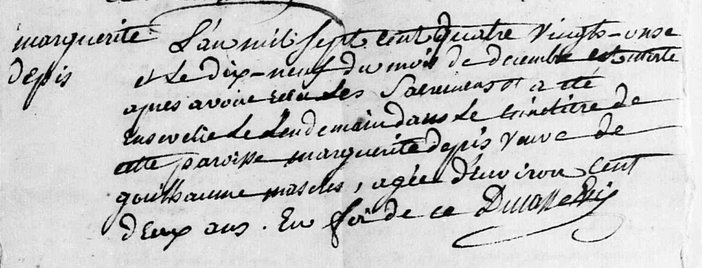 marguerite
depis
L'an mil sept cent quatre vingts-onse
et le dix-neuf du mois de decembre est morte
apres avoir recu les Sacremens et a été
Ensevelie le lendemain dans le Cimétiere de
cette paroisse marguerite depis veuve de
gouilhaume mascles, agée d'environ cent
deux ans. En foi de ce